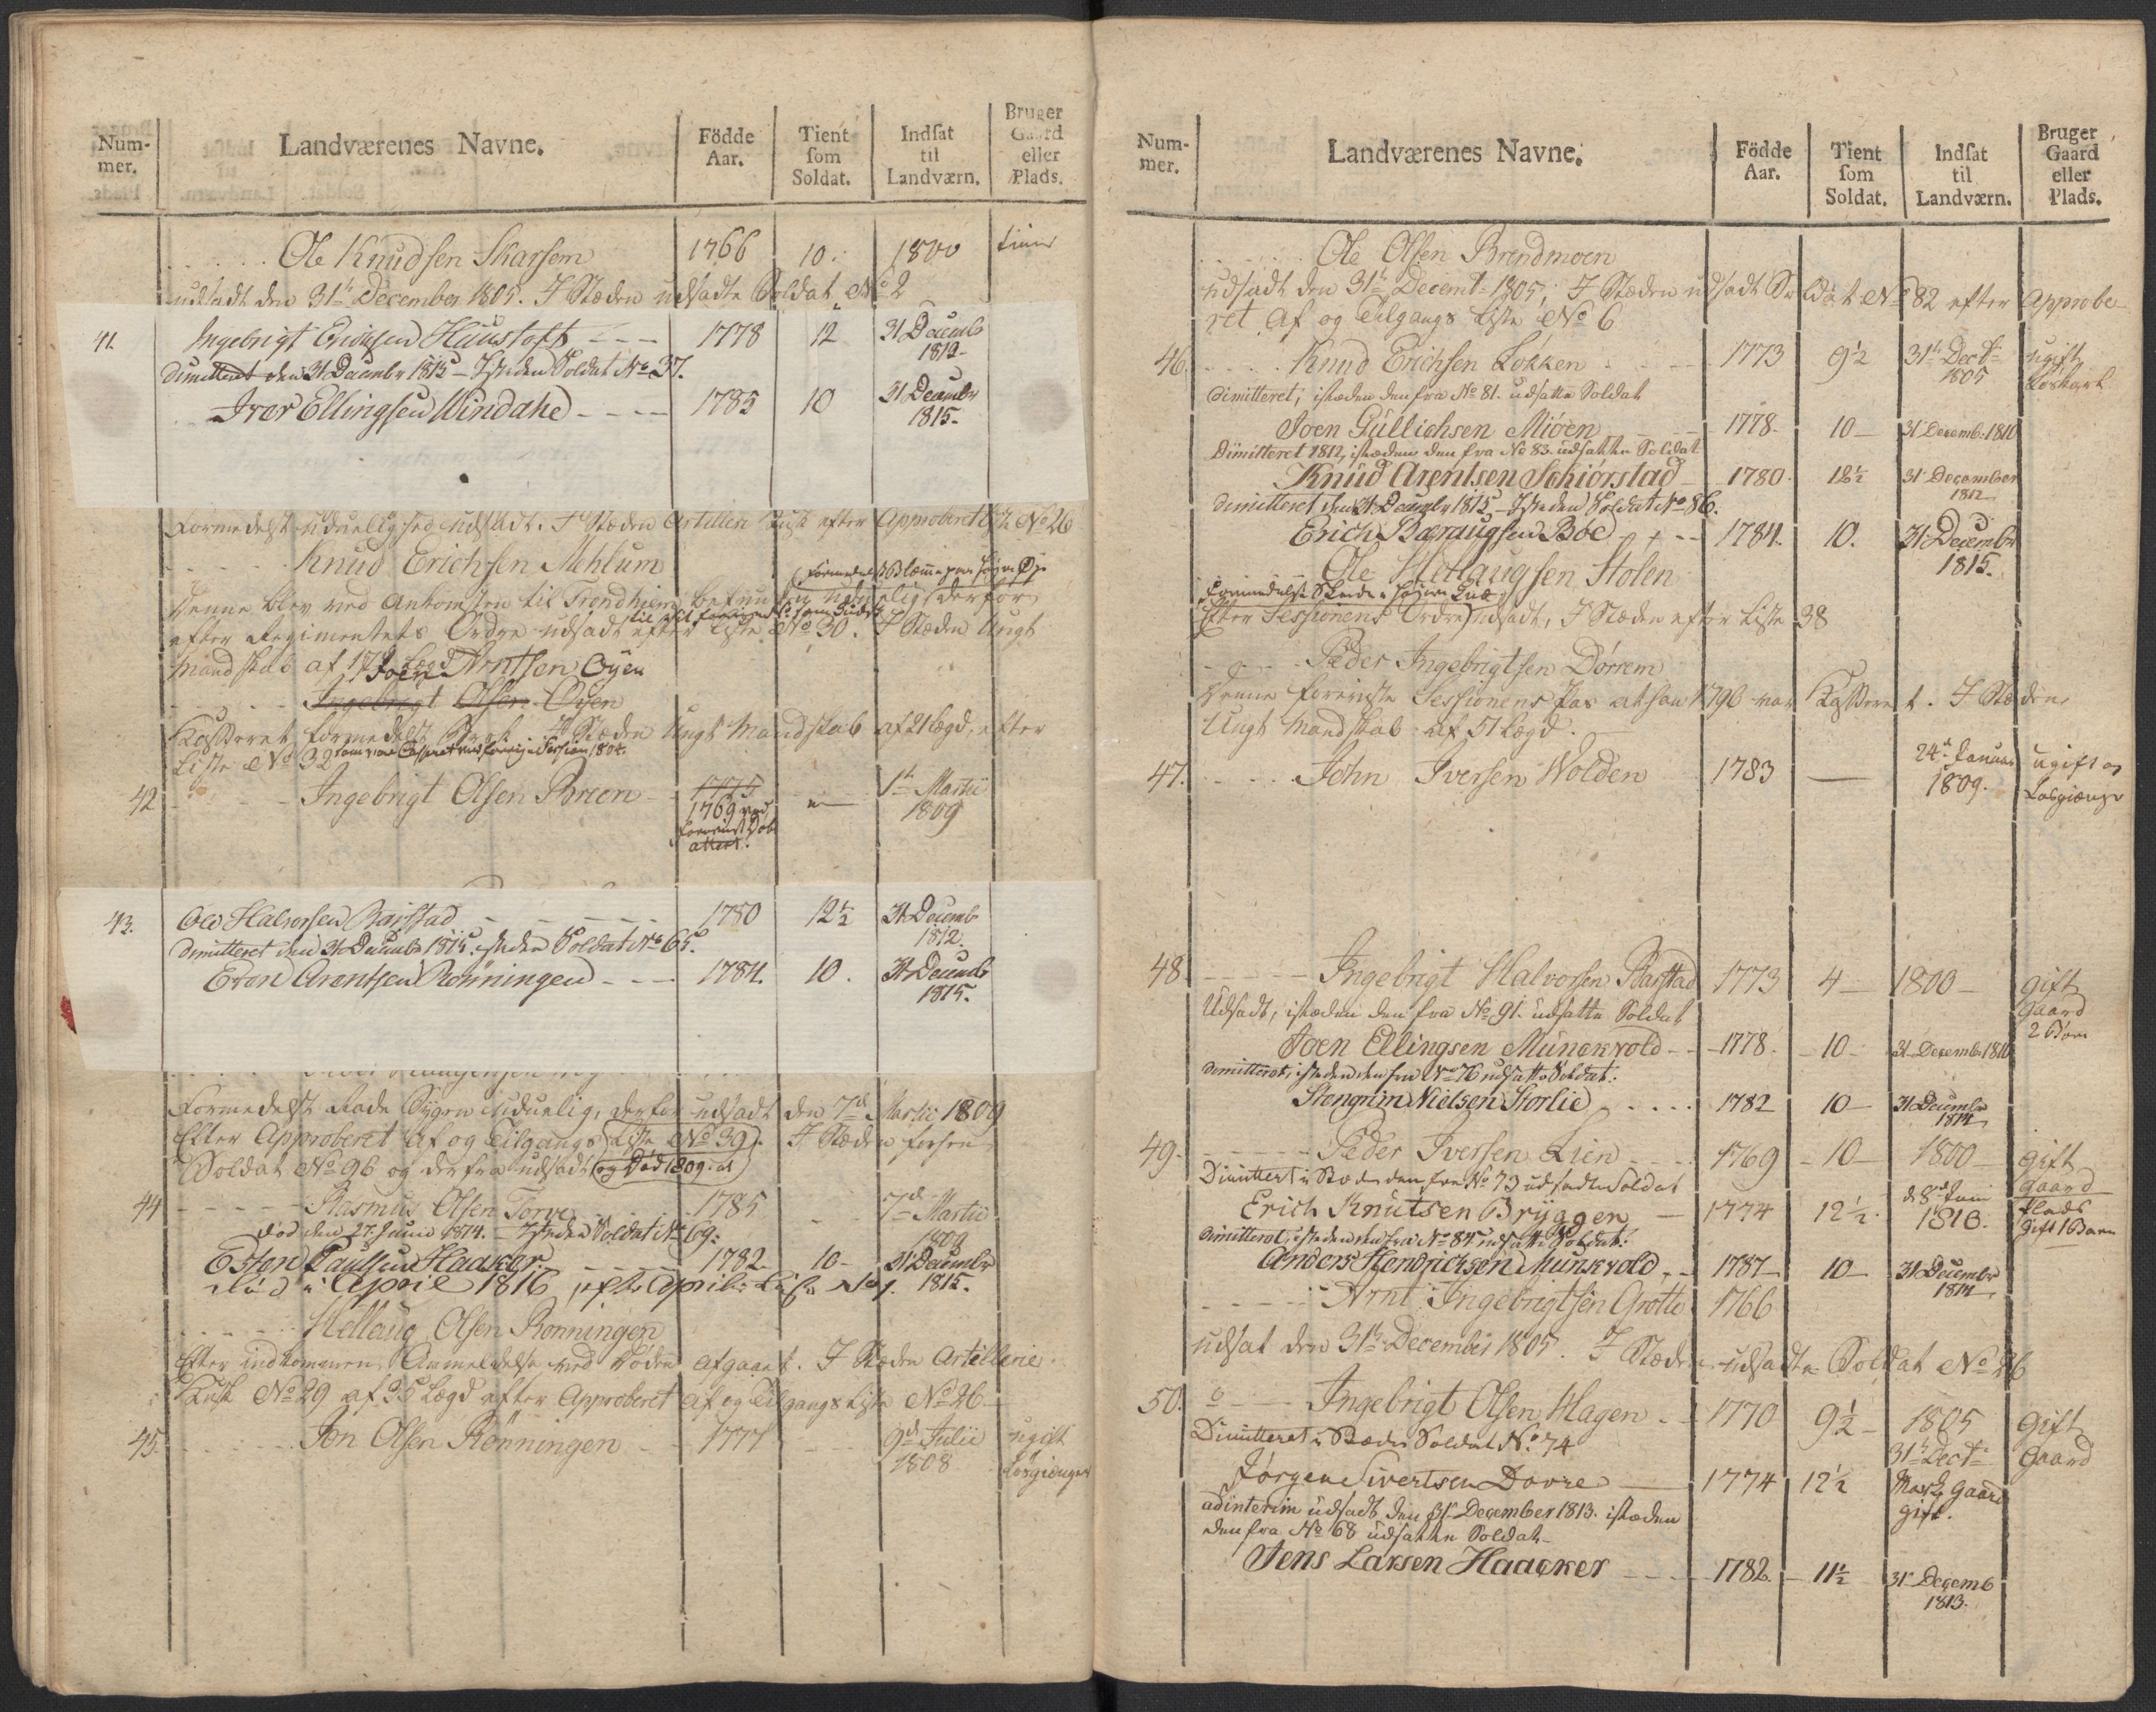 Num-
mer.
Landværenes Navne.
Födde
Aar.
Tient
som
Soldat.
Indsat
til
Landværn.
Bruger
Gaard
eller
Plads.
Ole Knudsen Skarsem 1766 10. 1800
udsadt den 31te December 1805. I Stæden udsadte Soldat No 2
41. Ingebrigt Erichsen Haustoft 1778 12 31 Decemb
1812
dimitteret den 31 Decembr 1815 – Isteden Soldat No 37.
Iver Ellingsen Windahl 1785 10 31 Decembr
1815.
Formedelst uduelighed udsadt. I Stæden Artillerie Kusk efter Approberet No 26
Knud Erichsen Mehlum
Denne blev ved Ankomsten til Trondhiem befunden uduelig derfor
efter Regimentets Ordre udsadt efter Liste No 30. I Stæden Ungt
Mandskab af Lægd Arntsen Øyen
Ingebrigt Olsen Øyen
Kasseret formedelst I Stæden Ungt Mandskab af 21 Lægd, efter
Liste No 32
42 Ingebrigt Olsen Breen 1775 1te Martii
1769 1809
43. Ole Halvorsen Barstad 1780 12½ 31 Decemb
1812.
dimitteret den 31 Decembr 1815. isteden Soldat No 65.
Eron Arentsen Rønningen 1784. 10. 31 Decemb
1815.
Formedelst uduelig, derfor udsadt den 7de Martii 1809
Efter Approberet Af og Tilgangs Liste No 39. I Stæden
Soldat No 96 og derfra udsadt og Død 1809.
44 Rasmus Olsen Torve 1785 7de Martii
1809
død den 27. Junii 1814. – Isteden Soldat No 69.
Esten Paulsen Haaker 1782. 10 31 Decembr
1815.
død i April 1816, efter Aprilis Liste
Hellaug Olsen Rønningen
Efter indkommen Anmeldelse ved Døden afgaaet. I Stæden Artillerie
Kusk No 29 af 35 Lægd efter Approberet Af og Tilgangs Liste No 26
45. Jon Olsen Rønningen 1777 9de Julii ugift
1808 Losgiænger
Num-
mer.
Landværenes Navne.
Födde
Aar.
Tient
som
Soldat.
Indsat
til
Landværn.
Bruger
Gaard
eller
Plads.
Ole Olsen Brendmoen
udsadt den 31te Decembr 1805, I Stæden udsadt Soldat No 82 efter Approbe-
ret Af og Tilgangs Liste No 6
46. Knud Erichsen Løkken 1773 9½ 31te Decbr ugift
1805
Dimitteret, istæden den fra No 81. udsatte Soldat
Joen Gullichsen Miøen 1778. 10 31 Decemb. 1810
Dimitteret 1812, istæden den fra No 83. udsatte Soldat
Knud Arentsen Schiørstad 1780. 12½ 31 December
1812
dimitteret den 31 Decembr 1815 – Isteden Soldat No 86.
Erich Baraugsen Boe 1784. 10. 31 Decembr
1815.
Ole Hellaugsen Stolen
Efter Sessionens Ordre udsadt, I Stæden efter Liste 38
Peder Ingebrigtsen Dørrem
Denne foreviste Sessionens Pas at han 1796 var Kasseret. I Stæden
Ungt Mandskab af 51 Lægd.
47. John Iversen Wolden 1783 24de Januar ugift og
1809. Losgiænger
48 Ingebrigt Halvorsen Barstad 1773 4 1800 gift
Gaard
2 Børn
Udsadt, istæden den fra No 91. udsatte Soldat
Joen Ellingsen Munckvold 1778. 10 31 Decemb. 1810
Dimitteret, isteden den fra No 76 udsatte Soldat.
Stengrim Nielsen Storlie 1782 10 31 Decembr
1814
49. Peder Iversen Lien 1769 10 1800 gift
Gaard
Dimittert i Stæden den fra No 73 udsadte Soldat
Erich Knutsen Bryggen 1774 12½. d. 8de Juni Plads
1810. gift 1 Barn
dimitteret, isteden den fra No 84 udsatte Soldat.
Anders Hendrichsen Munkvold 1787 10 31 Decembr
1814
Arnt Ingebrigtsen Grotte 1766
udsat den 31te December 1805. I Stæden udsadte Soldat No 26
50. Ingebrigt Olsen Hagen 1770 9½ 1805 Gift
31te Decbr Gaard
Dimitteret i Stæden Soldat No 74
Jørgen Sivertsen Dovre 1774 12½ Gaard
gift.
ad interim udsadt den 31 December 1813. istæden
den fra No 68 udsatte Soldat
Jens Larsen Haacker 1782. 11½ 31 Decemb
1813.